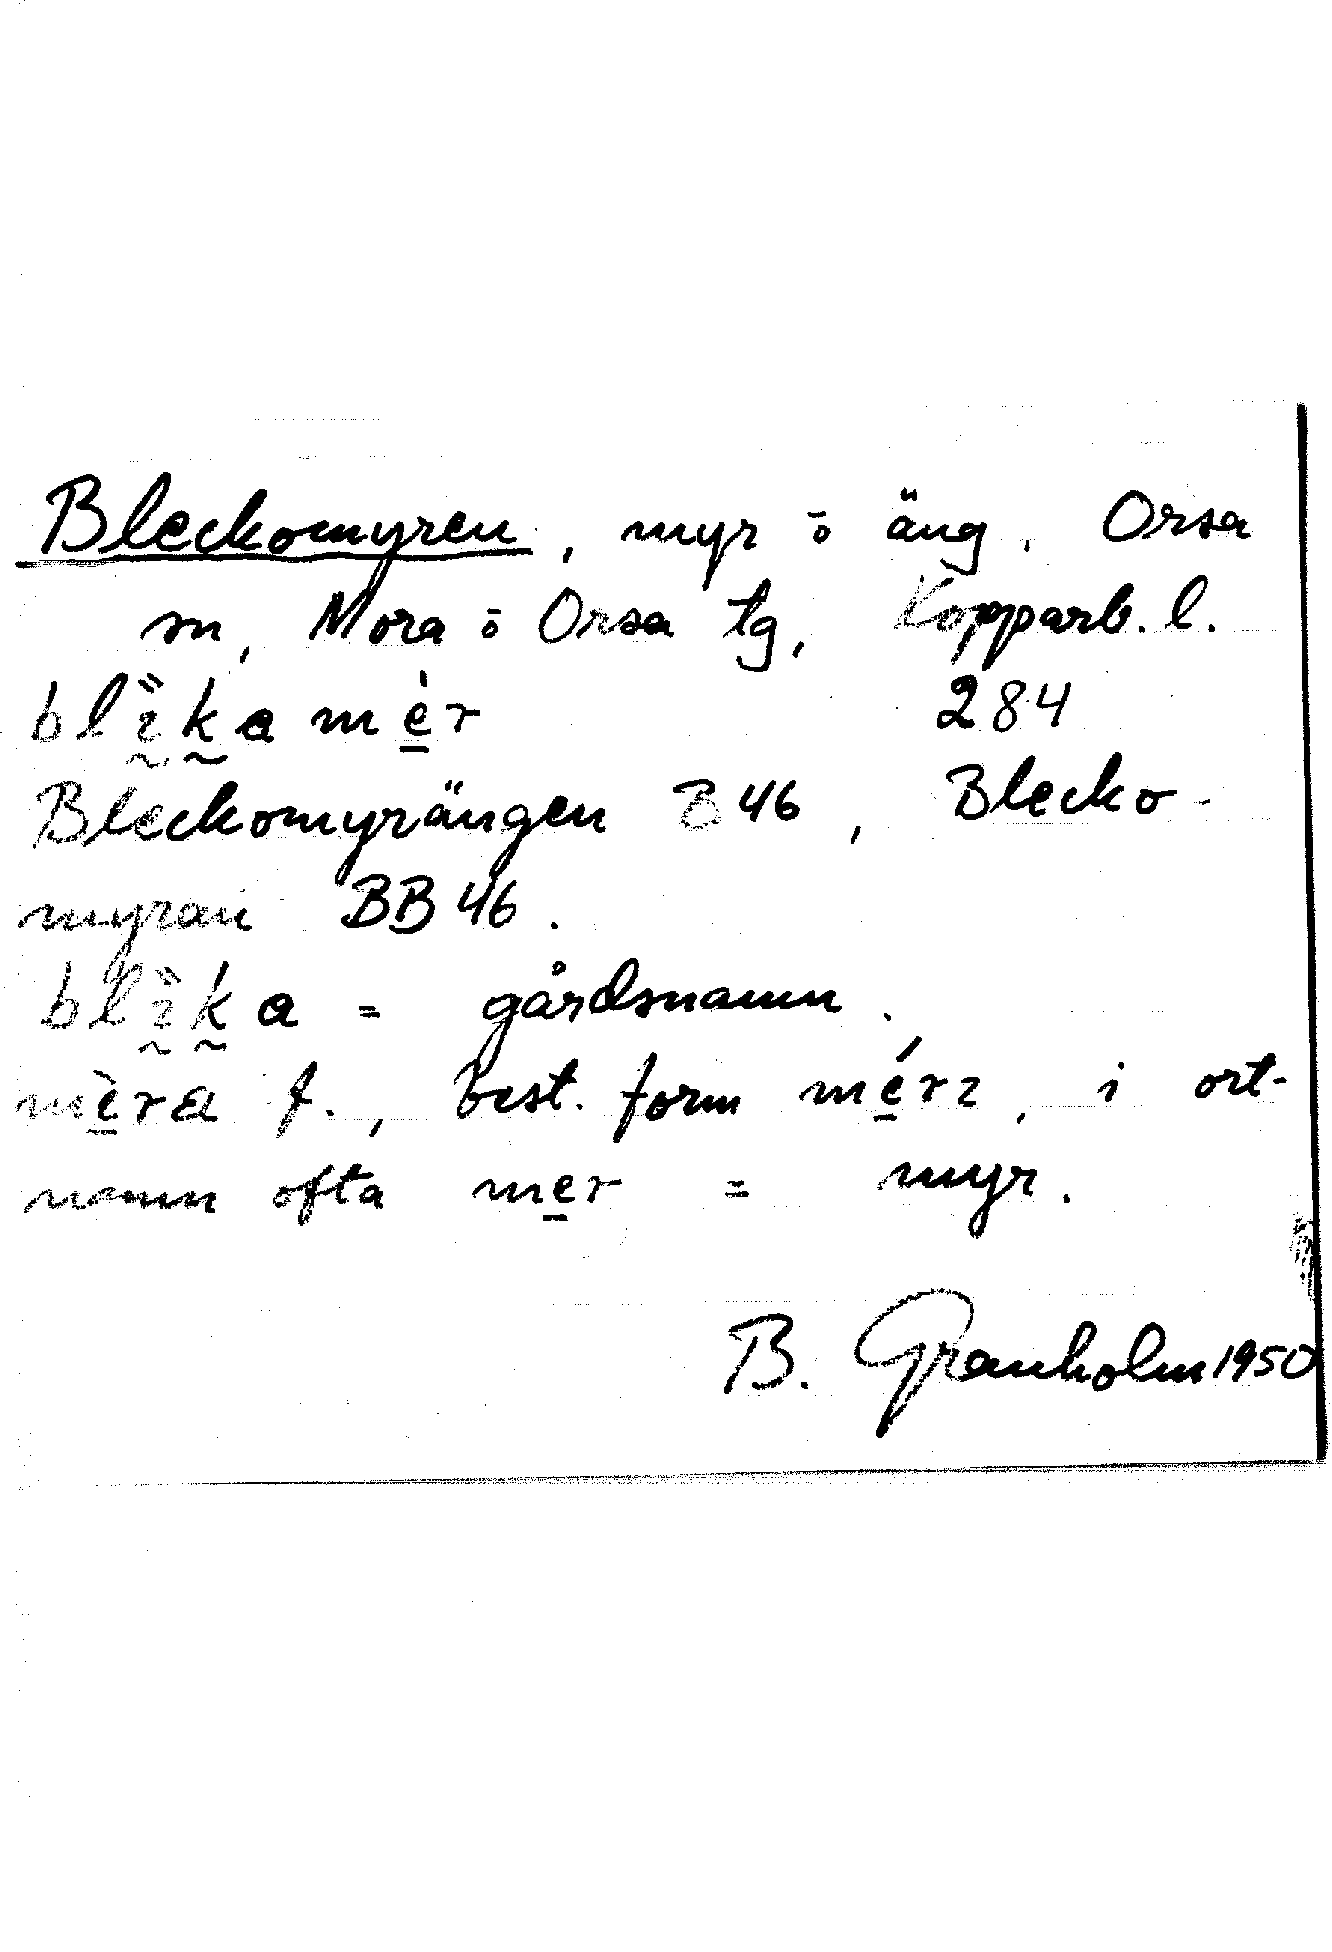 Bleckomyren, myr ō äng, Orsa
sn, Mora ō Orsa tg, Kopparb. l.
blı̰̏k̰amè̱r 284
Bleckomyrängen B 46, Blecko-
myran BB 46.
blı̰̏k̰a = gårdsnamn.
mè̱ra f., best. form mé̱rı, i ort-
namn ofta me̱r = myr.
B. Granholm 1950